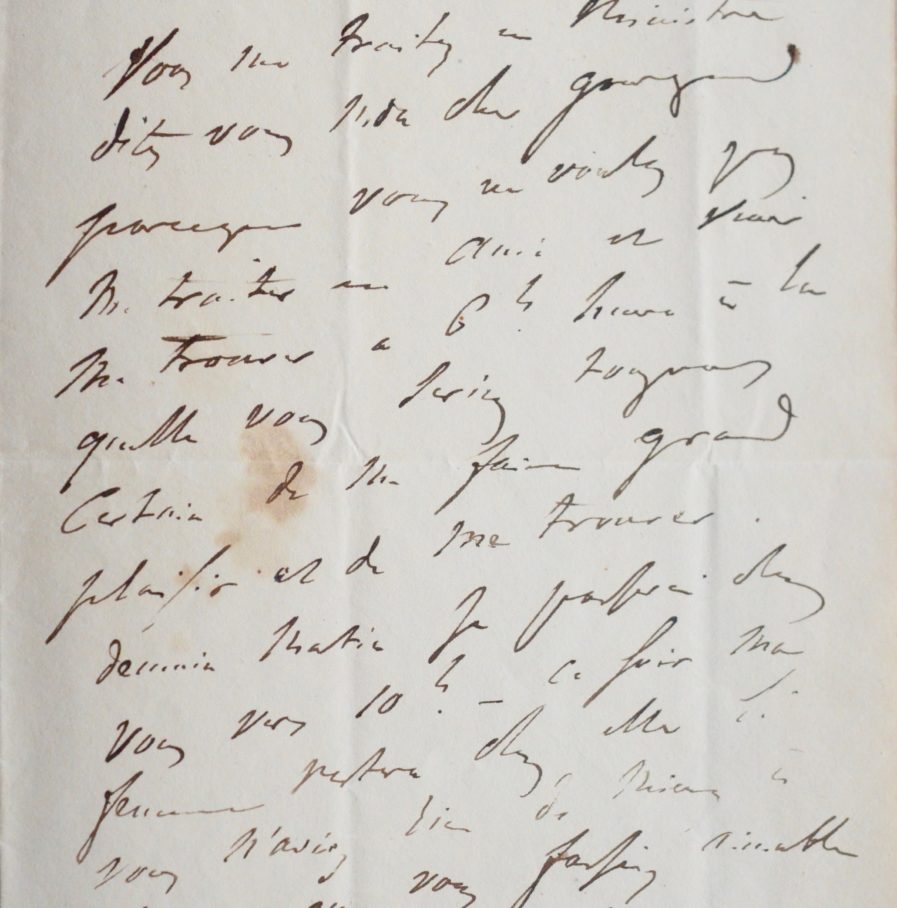 Vous me traitez en Ministre
dites vous cher gourgaud
parceque vous ne voulez pas
Me traiter en ami et venir
Me trouver a 6h heure à la
quelle vous seriez toujours
Certain de me faire grand
plaisir et de me trouver.
demain matin je passerai chez
vous vers 10h. – ce soir ma
femme restera chez elle si
vous n'aviez rien de mieux à
vous fussiez aimable